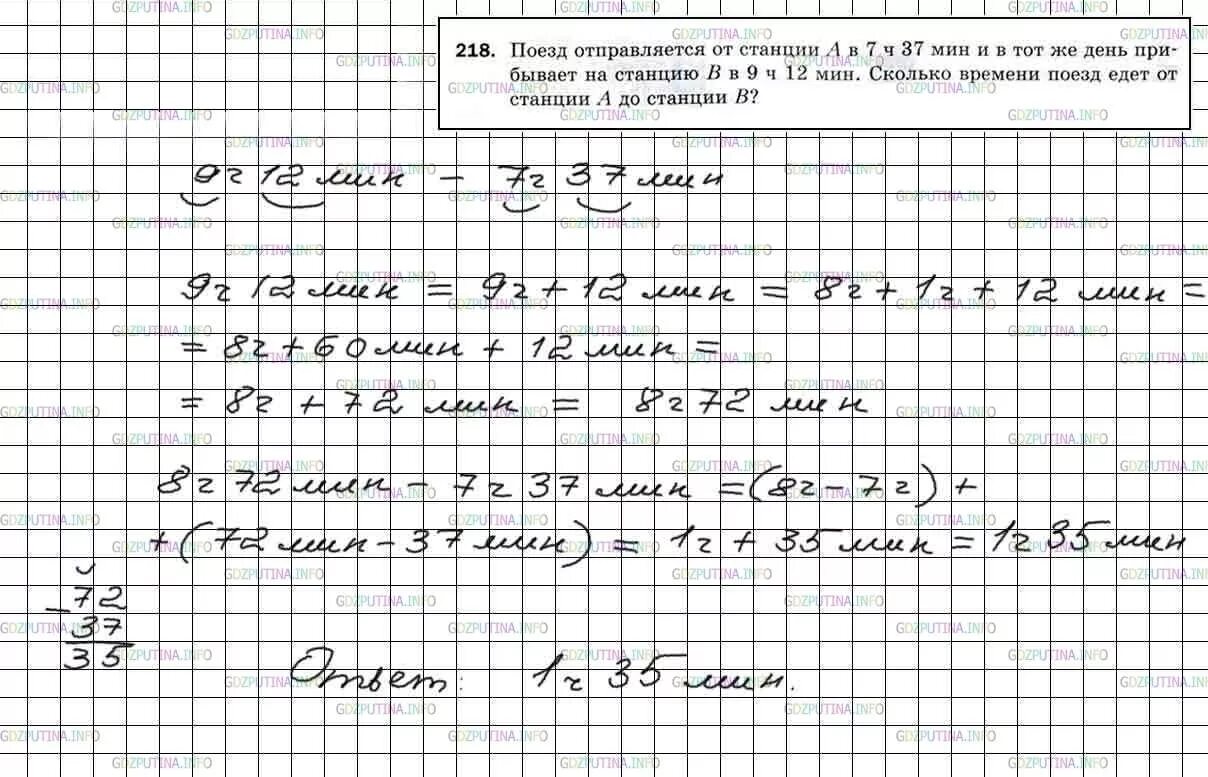 218. Поезд отправляется от станции A в 7 ч 37 мин и в тот же день при-
бывает на станцию B в 9 ч 12 мин. Сколько времени поезд едет от
станции A до станции B?
9ч 12 мин - 7ч 37 мин
9ч 12 мин = 9ч + 12 мин = 8ч + 1ч + 12 мин =
= 8ч + 60 мин + 12 мин =
= 8ч + 72 мин = 8ч 72 мин
8ч 72 мин - 7ч 37 мин = (8ч - 7ч) +
+ (72 мин - 37 мин) = 1ч + 35 мин = 1ч 35 мин
- 72
37
35
Ответ: 1ч 35 мин.
GDZPUTINA.INFO